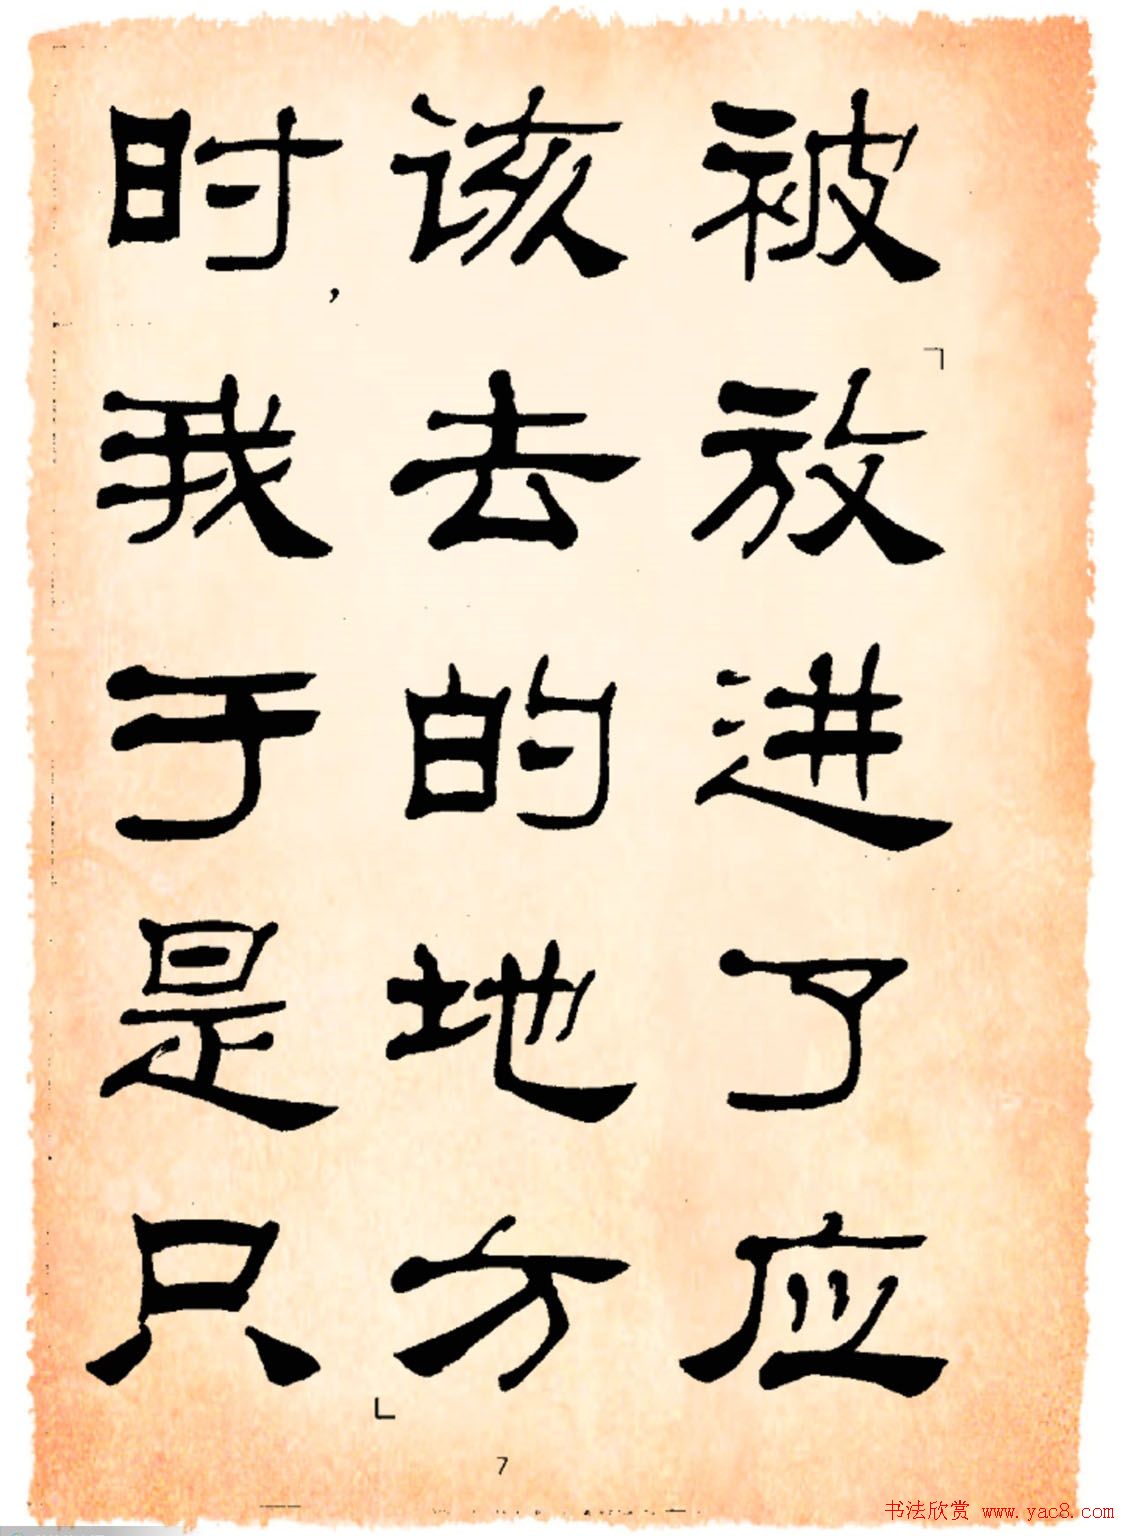 被「放进了应
该去的地方」
时，我于是只
7
书法欣赏 www.yac8.com